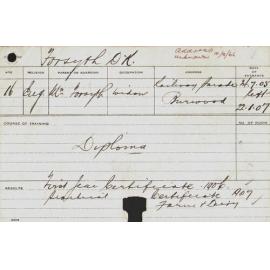 Forsyth D.K. Address unknown
AGE RELIGION PARENT OR GUARDIAN OCCUPATION ADDRESS DATE OF ENTRANCE
16 Eng Mrs Forsyth widow Railway Parade 21.7.05
Burwood left
22.1.07
COURSE OF TRAINING No. OF ROOM
Diploma
RESULTS First Year Certificate 1906
Certificate 1907
Farm & Dairy